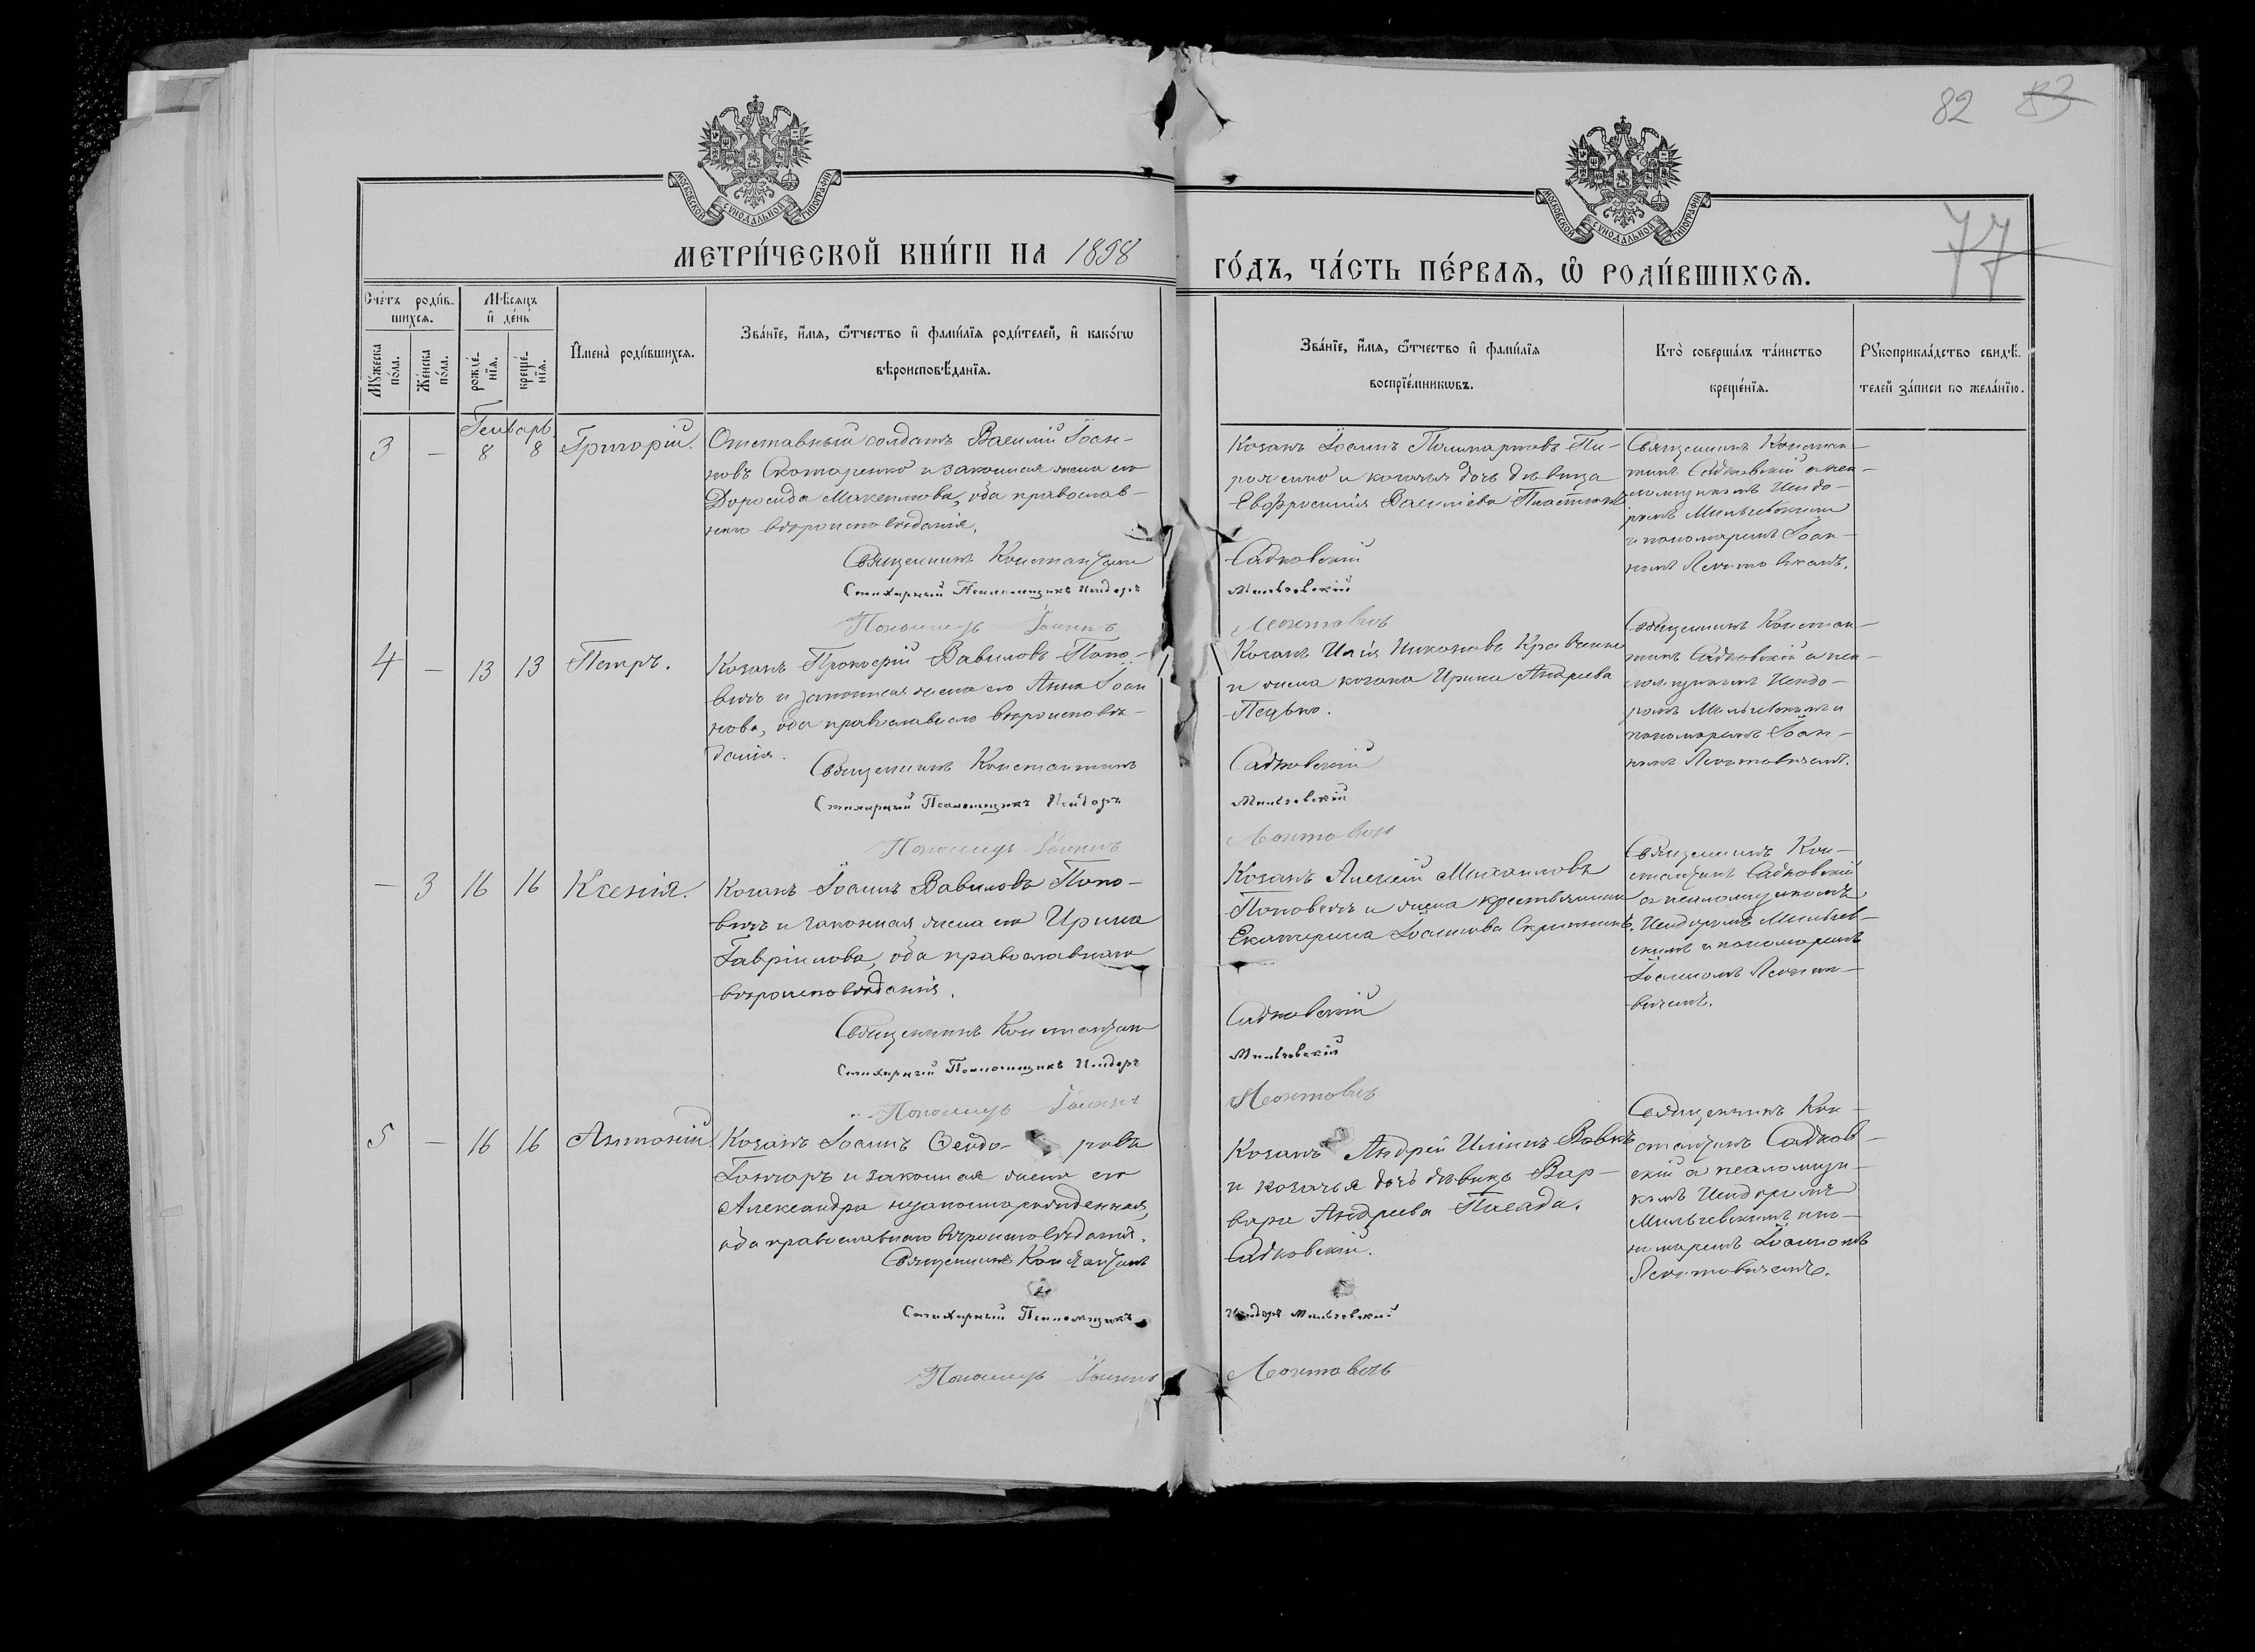 82 83
77
МОСКОВСКОЙ СѴНОДАЛЬНОЙ ТИПОГРАФІИ
МОСКОВСКОЙ СѴНОДАЛЬНОЙ ТИПОГРАФІИ
МЕТРИ́ЧЕСКОЙ КНИ́ГИ НА 1898
ГО́ДЪ, ЧА́СТЬ ПЕ́РВАѦ, Ѡ҆ РОДИ́ВШИХСѦ.
Сче́тъ роди́в-
шихсѧ.
Мꙋжеска по́ла.
Же́нска по́ла.
Мѣ́сѧцъ
и҆ де́нь
рожде́-
нїѧ.
креще́-
нїѧ.
И҆мена̀ роди́вшихсѧ.
Зва́нїе, и҆́мѧ, ѻ҆́тчество и҆ фами́лїѧ роди́телей, и҆ како́гѡ
вѣроисповѣ́данїѧ.
Зва́нїе, и҆́мѧ, ѻ҆́тчество и҆ фами́лїѧ
воспрїе́мникѡвъ.
Кто̀ соверша́лъ та́инство
креще́нїѧ.
Рꙋкоприкла́дство свидѣ́-
телей за́писи по жела́нїю.
Генварь
3 — 8 8 Григорій.
Отставный солдатъ Василій Іоан-
новъ Скотаренко и законная жена его
Доросида Максимова, оба православ-
наго вѣроисповѣданія.
Священникъ Константинъ
Стихарный Псаломщикъ Исидоръ
Пономарь Іоаннъ
Козакъ Іоаннъ
и козачья дочь дѣвица
Евфросинія Василіева
Садковскій
Мильчевскій
Леонтовичъ
Священникъ Констан-
тинъ Садковскій съ пса-
ломщикомъ Исидо-
ромъ Мильчевскимъ
и пономаремъ Іоан-
номъ Леонтовичемъ.
4 — 13 13 Петръ.
Козакъ Прокофій Вавиловъ Попо-
вичъ и законная жена его Анна Іоан
нова, оба православнаго вѣроисповѣ-
данія.
Священникъ Константинъ
Стихарный Псаломщикъ Исидоръ
Пономарь Іоаннъ
Козакъ Илія Никоновъ Кравченко
и жена козака Ирина Андреева
Пецько.
Садковскій
Мильчевскій
Леонтовичъ
Священникъ Констан-
тинъ Садковскій съ пса-
ломщикомъ Исидо-
ромъ Мильчевскимъ и
пономаремъ Іоан-
номъ Леонтовичемъ.
— 3 16 16 Ксенія.
Козакъ Іоаннъ Вавиловъ Попо-
вичъ и законная жена его Ирина
Гавріилова, оба православнаго
вѣроисповѣданія.
Священникъ Константинъ
Стихарный Псаломщикъ Исидоръ
Пономарь Іоаннъ
Козакъ Алексій Михаиловъ
Поповичъ и жена крестьянина
Екатерина Іоаннова
Садковскій
Мильчевскій
Леонтовичъ
Священникъ Кон-
стантинъ Садковскій
съ псаломщикомъ
Исидоромъ Мильчев-
скимъ и пономаремъ
Іоанномъ Леонто-
вичемъ.
5 — 16 16 Антоній
Козакъ Іоаннъ Ѳеодо- ровъ
Гончаръ и законная жена его
Александра незаконнорожденная,
оба православнаго вѣроисповѣданія.
Священникъ Константинъ
Стихарный Псаломщикъ
Пономарь Іоаннъ
Козакъ Андрей Иліинъ Вовкъ
и козачья дочь дѣвица Вар-
вара Андреева Пасада.
Садковскій.
Исидоръ Мильчевскій
Леонтовичъ
Священникъ Кон-
стантинъ Садков-
скій съ псаломщи-
комъ Исидоромъ
Мильчевскимъ и по-
номаремъ Іоанномъ
Леонтовичемъ.